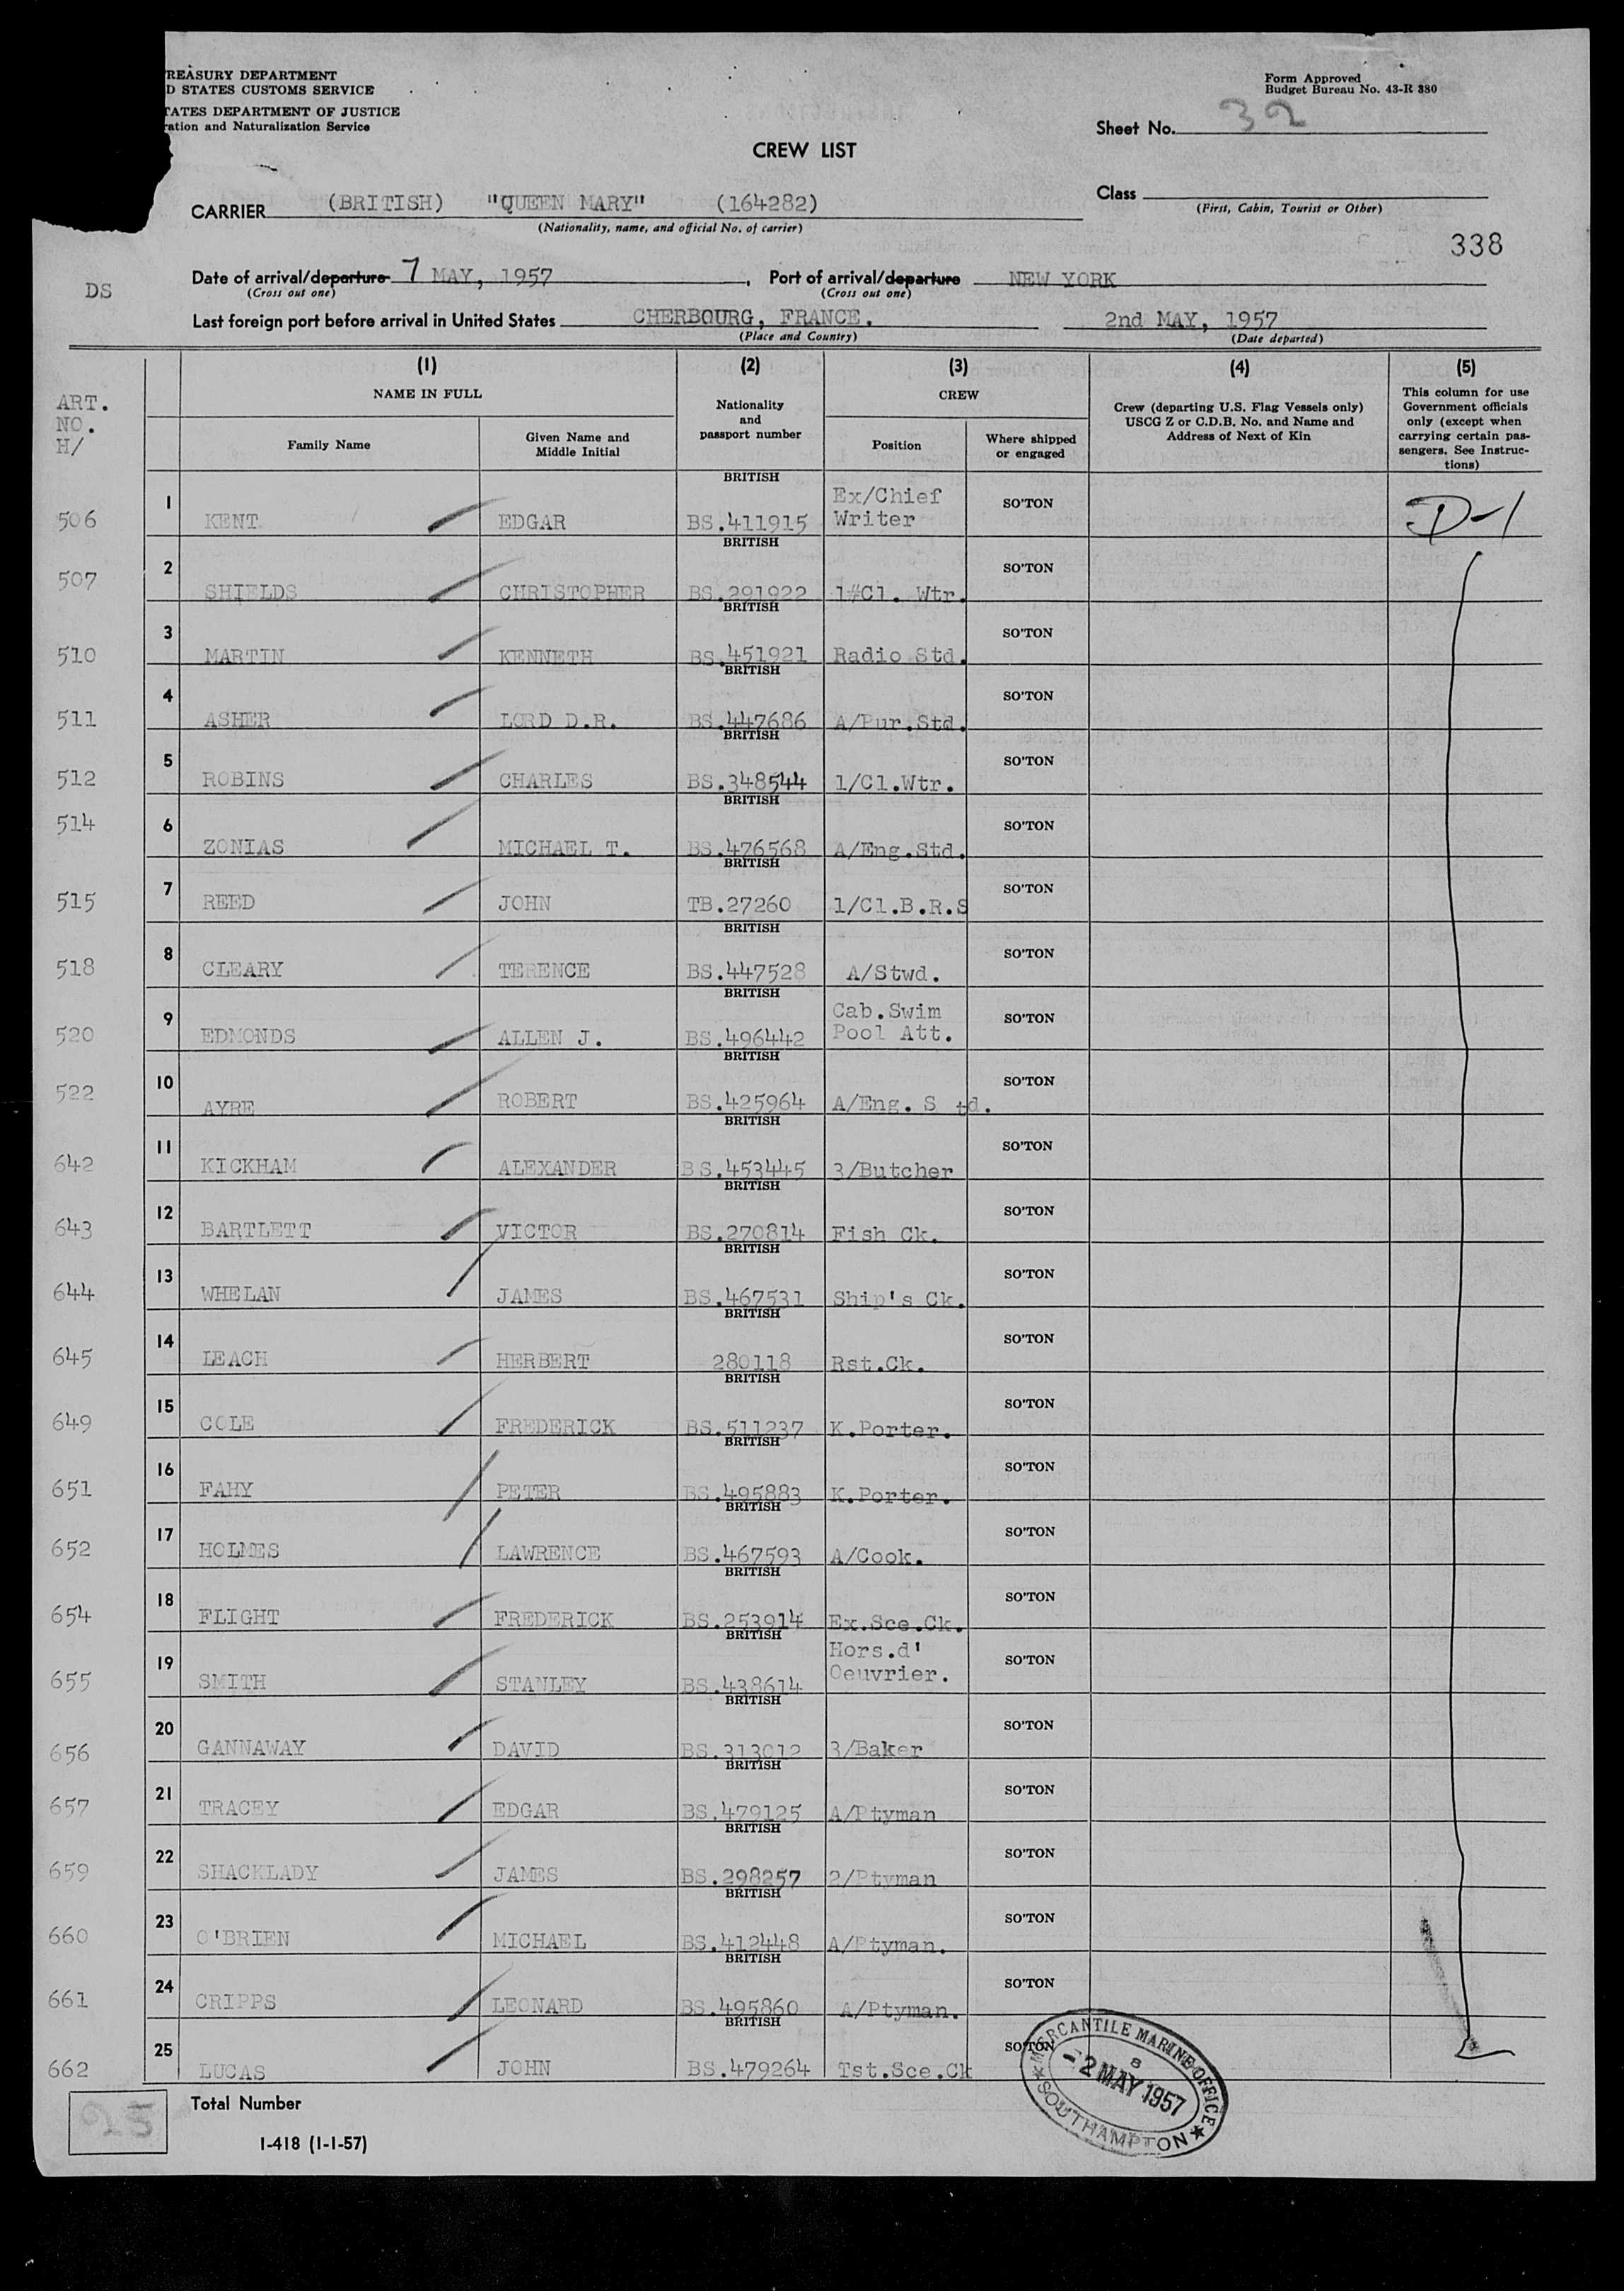 REASURY DEPARTMENT
D STATES CUSTOMS SERVICE
TATES DEPARTMENT OF JUSTICE
ration and Naturalization Service
Form Approved
Budget Bureau No. 43-R 380
Sheet No. 32
CREW LIST
CARRIER (BRITISH) "QUEEN MARY" (164282)
(Nationality, name, and official No. of carrier)
Class
(First, Cabin, Tourist or Other)
338
DS
Date of arrival/departure 7 MAY, 1957, Port of arrival/departure NEW YORK
(Cross out one) (Cross out one)
Last foreign port before arrival in United States CHERBOURG, FRANCE. 2nd MAY, 1957
(Place and Country) (Date departed)
ART.
NO.
H/
(1) (2) (3) (4) (5)
NAME IN FULL
Family Name
Given Name and
Middle Initial
Nationality
and
passport number
CREW
Position
Where shipped
or engaged
Crew (departing U.S. Flag Vessels only)
USCG Z or C.D.B. No. and Name and
Address of Next of Kin
This column for use
Government officials
only (except when
carrying certain pas-
sengers. See Instruc-
tions)
506 1 KENT EDGAR BRITISH BS.411915 Ex/Chief Writer SO'TON D-1
507 2 SHIELDS CHRISTOPHER BRITISH BS.291922 1#Cl. Wtr. SO'TON
510 3 MARTIN KENNETH BRITISH BS.451921 Radio Std. SO'TON
511 4 ASHER LORD D.R. BRITISH BS.447686 A/Pur.Std. SO'TON
512 5 ROBINS CHARLES BRITISH BS.348544 1/Cl.Wtr. SO'TON
514 6 ZONIAS MICHAEL T. BRITISH BS.476568 A/Eng.Std. SO'TON
515 7 REED JOHN BRITISH TB.27260 1/Cl.B.R.S SO'TON
518 8 CLEARY TERENCE BRITISH BS.447528 A/Stwd. SO'TON
520 9 EDMONDS ALLEN J. BRITISH BS.496442 Cab.Swim Pool Att. SO'TON
522 10 AYRE ROBERT BRITISH BS.425964 A/Eng. S td. SO'TON
642 11 KICKHAM ALEXANDER BRITISH BS.453445 3/Butcher SO'TON
643 12 BARTLETT VICTOR BRITISH BS.270814 Fish Ck. SO'TON
644 13 WHELAN JAMES BRITISH BS.467531 Ship's Ck. SO'TON
645 14 LEACH HERBERT BRITISH 280118 Rst.Ck. SO'TON
649 15 COLE FREDERICK BRITISH BS.511237 K.Porter. SO'TON
651 16 FAHY PETER BRITISH BS.495883 K.Porter. SO'TON
652 17 HOLMES LAWRENCE BRITISH BS.467593 A/Cook. SO'TON
654 18 FLIGHT FREDERICK BRITISH BS.253914 Ex.Sce.Ck. SO'TON
655 19 SMITH STANLEY BRITISH BS.438614 Hors.d' Oeuvrier. SO'TON
656 20 GANNAWAY DAVID BRITISH BS.313012 3/Baker SO'TON
657 21 TRACEY EDGAR BRITISH BS.479125 A/Ptyman SO'TON
659 22 SHACKLADY JAMES BRITISH BS.298257 2/Ptyman SO'TON
660 23 O'BRIEN MICHAEL BRITISH BS.412448 A/Ptyman. SO'TON
661 24 CRIPPS LEONARD BRITISH BS.495860 A/Ptyman. SO'TON
662 25 LUCAS JOHN BRITISH BS.479264 Tst.Sce.Ck SO'TON
MERCANTILE MARINE OFFICE
8
-2 MAY 1957
SOUTHAMPTON
25 Total Number
I-418 (1-1-57)